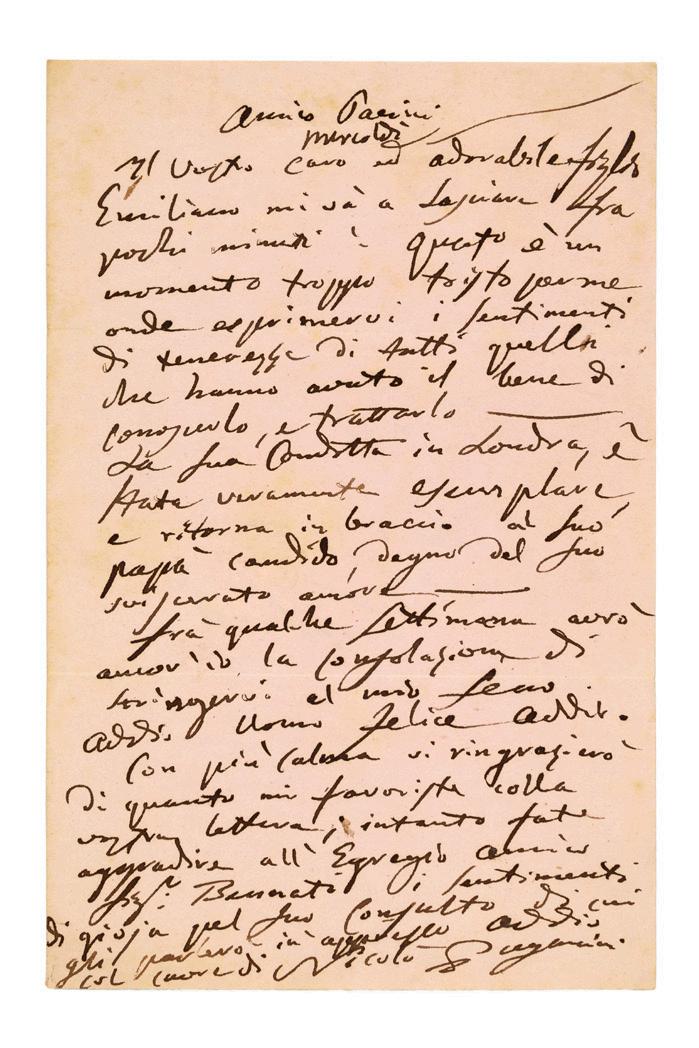 Amico Pacini
mercoldì
Il Vostro caro ed adorabile figlio
Emiliano mi và a Lasciare fra
pochi minuti: Questo è un
momento troppo tristo per me
onde esprimervi i sentimenti
di tenerezze di tutti quelli
che hanno avuto il bene di
conoscerlo, e trattarlo
La sua Condotta in Londra, è
stata veramente esemplare,
e ritorna in braccio al suo
papà candido, degno del suo
sviscerato amore
frà qualche settimana avrò
anch'io la consolazione di
stringervi al mio seno.
Addio Uomo felice addio.
Con più calma vi ringrazierò
di quanto mi favoriste colla
vostra lettera; intanto fate
aggradire all'Egregio amico
Sig.r Bennati i sentimenti
di gioja pel suo Consulto di cui
gli parlerò in appresso addio
col cuore di Nicolò Paganini.